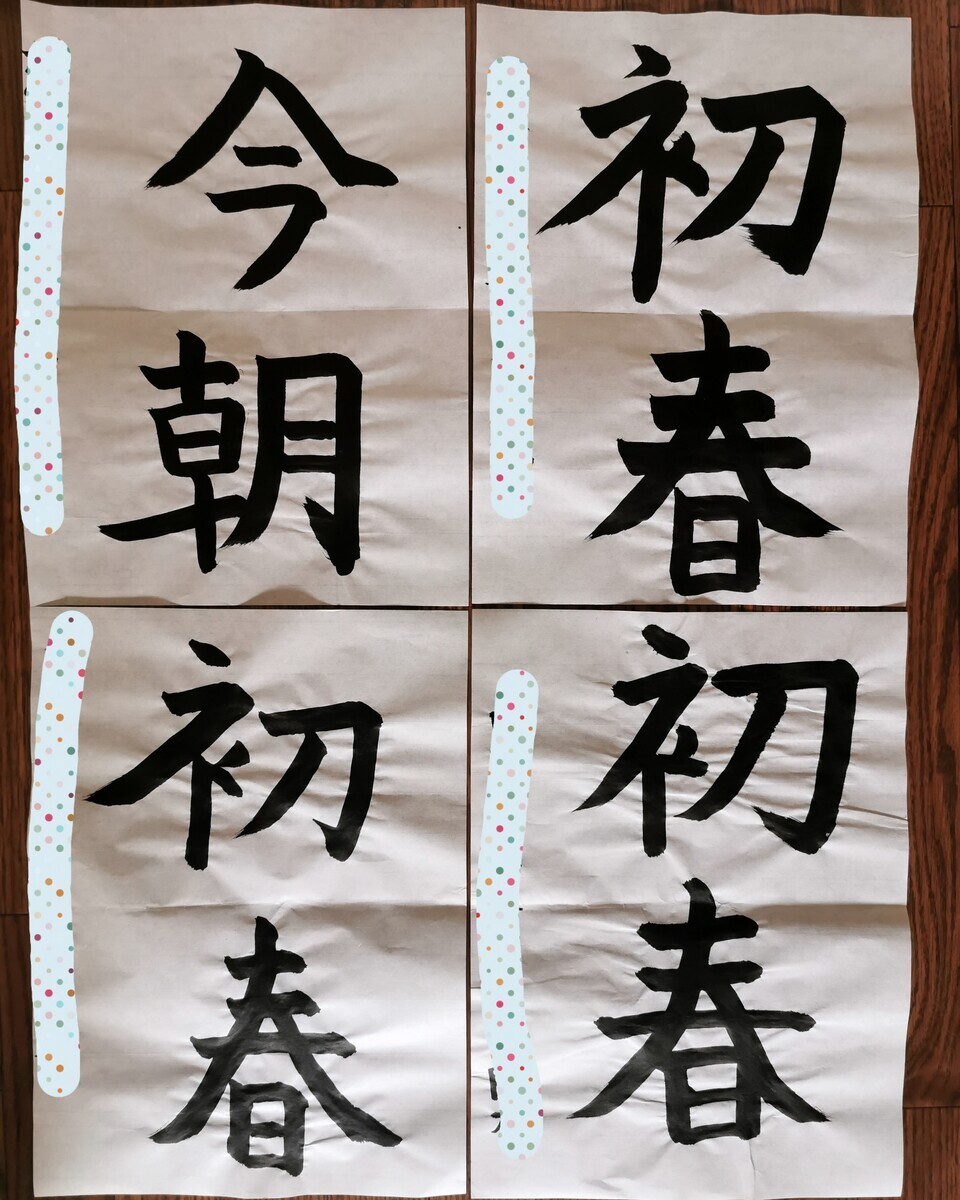 今朝
初春
初春
初春